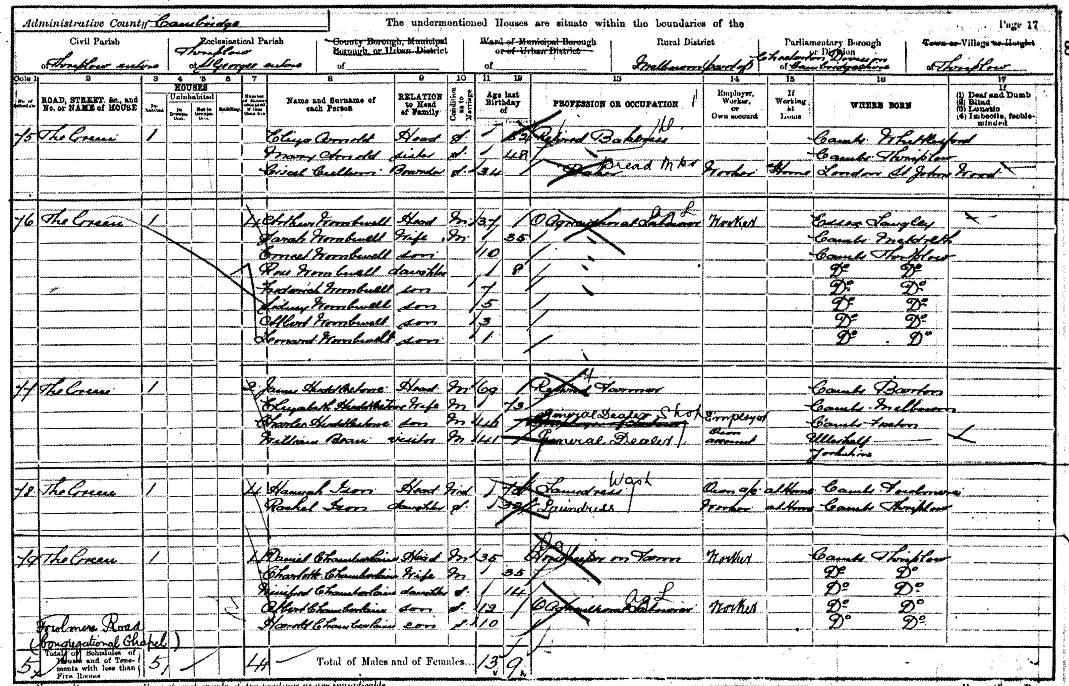 Administrative County Cambridge The undermentioned Houses are situate within the boundaries of the Page 17
Civil Parish Ecclesiastical Parish County Borough, Municipal Borough, or Urban District Ward of Municipal Borough or of Urban District Rural District Parliamentary Borough or Division Town or Village or Hamlet
of Thriplow entire of St Georges entire of Melbourn part of of Chesterton Division Cambridgeshire of Thriplow
Cols 1 2 3 4 5 6 7 8 9 10 11 12 13 14 15 16 17
ROAD, STREET, &c., and No. or NAME of HOUSE HOUSES Uninhabited Name and Surname of each Person RELATION to Head of Family Condition as to Marriage Age last Birthday of PROFESSION OR OCCUPATION Employer, Worker, or Own account If Working at Home WHERE BORN If (1) Deaf and Dumb (2) Blind (3) Lunatic (4) Imbecile, feeble-minded
75 The Green 1 Eliza Arnold Head S. Cambs Whittlesford
Mary Arnold sister S. 48 Cambs Thriplow
Boarder S. 34 Baker Bread Worker Home London St John Wood
76 The Green 1 4 Arthur Wombwell Head M 37 Agricultural Labourer Ag L Worker Essex Langley
Sarah Wombwell Wife M 35 Cambs Meldreth
Ernest Wombwell son 10 Cambs Thriplow
Rose Wombwell daughter 8 Do Do
Frederick Wombwell son 7 Do Do
Sidney Wombwell son 5 Do Do
Albert Wombwell son 3 Do Do
Leonard Wombwell son 1 Do Do
77 The Green 1 James Huddlestone Head M 69 Retired Farmer Cambs Barton
Elizabeth Huddlestone Wife M 73 Cambs Melbourn
Charles Huddlestone son M General Dealer Shop Employer Cambs Foxton
William visitor M 41 General Dealer own account Yorkshire
78 The Green 1 4 Hannah Ison Head Wid Laundress Wash Own a/c at Home Cambs Fowlmere
Rachel Ison daughter S. Laundress Worker at Home Cambs Thriplow
79 The Green 1 4 Daniel Chamberlain Head M 35 on Farm Worker Cambs Thriplow
Charlotte Chamberlain Wife M 35 Do Do
Winifred Chamberlain daughter S. 14 Do Do
Albert Chamberlain son S. 12 Agricultural Labourer Ag L Worker Do Do
Harold Chamberlain son 10 Do Do
Fowlmere Road
(Congregational Chapel)
5 Total of Schedules of Houses and of Tenements with less than Five Rooms 5 4 Total of Males and of Females... 13 9